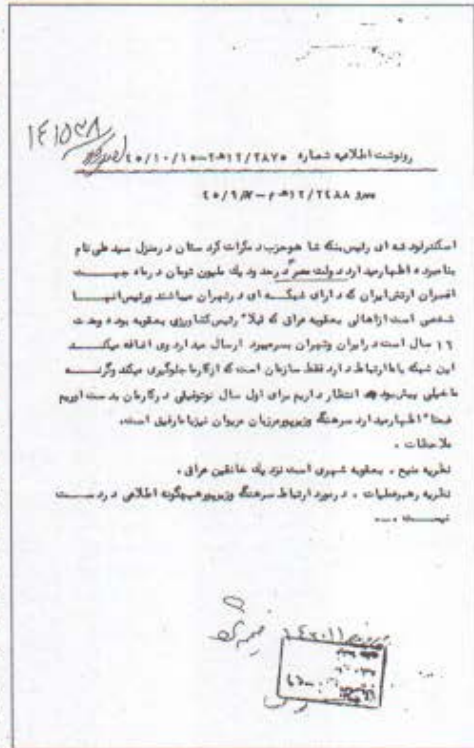 ۱۴۱۵۳۸
رونوشت اطلاعیه شماره ۱۲/۲۸۷۵ھ۲-۴۵/۱۰/۱۵
۱۲/۲۴۸۸ھ م-۴۵/۹/
اسکندر لوند ای رئیس بنکه شا هو حزب د مکرات کرد ستان د ر منزل سید علی نام
بنامبرد ه اظهار مید ارد د ولت مصر د ر حد ود یك ملیون تومان د ر ماه جهــت
افسران ارتش ایران که د ارای شبکه ای د ر تهران میباشند و رئیس آنهــا
شخصی است از اهالی بعقویه عراق که قبلا" رئیس کشاورزی بعقویه بود ه ومد ت
۱۶ سال است د ر ایران وتهران بسر میبرد ارسال مید ارد وی اضافه میکنــد
این شبکه با ما ارتباط د ارد فقط سازمان است که از کار ما جلوگیری میکند وگرنــه
ما خیلی پیش بود یم انتظار د اریم برای اول سال نو توفیقی د ر کارمان بد ست آوریم
ضمنا" اظهار مید ارد سرهنگ وزیرپور مرزبان مریوان نیز با ما رفیق است.
ملاحظات .
نظریه منبع . بعقویه شهری است نزد یك خانقین عراق .
نظریه رهبر عملیات . د ر مورد ارتباط سرهنگ وزیرپور هیچگونه اطلاعی د ر د ســت
نیســت ...